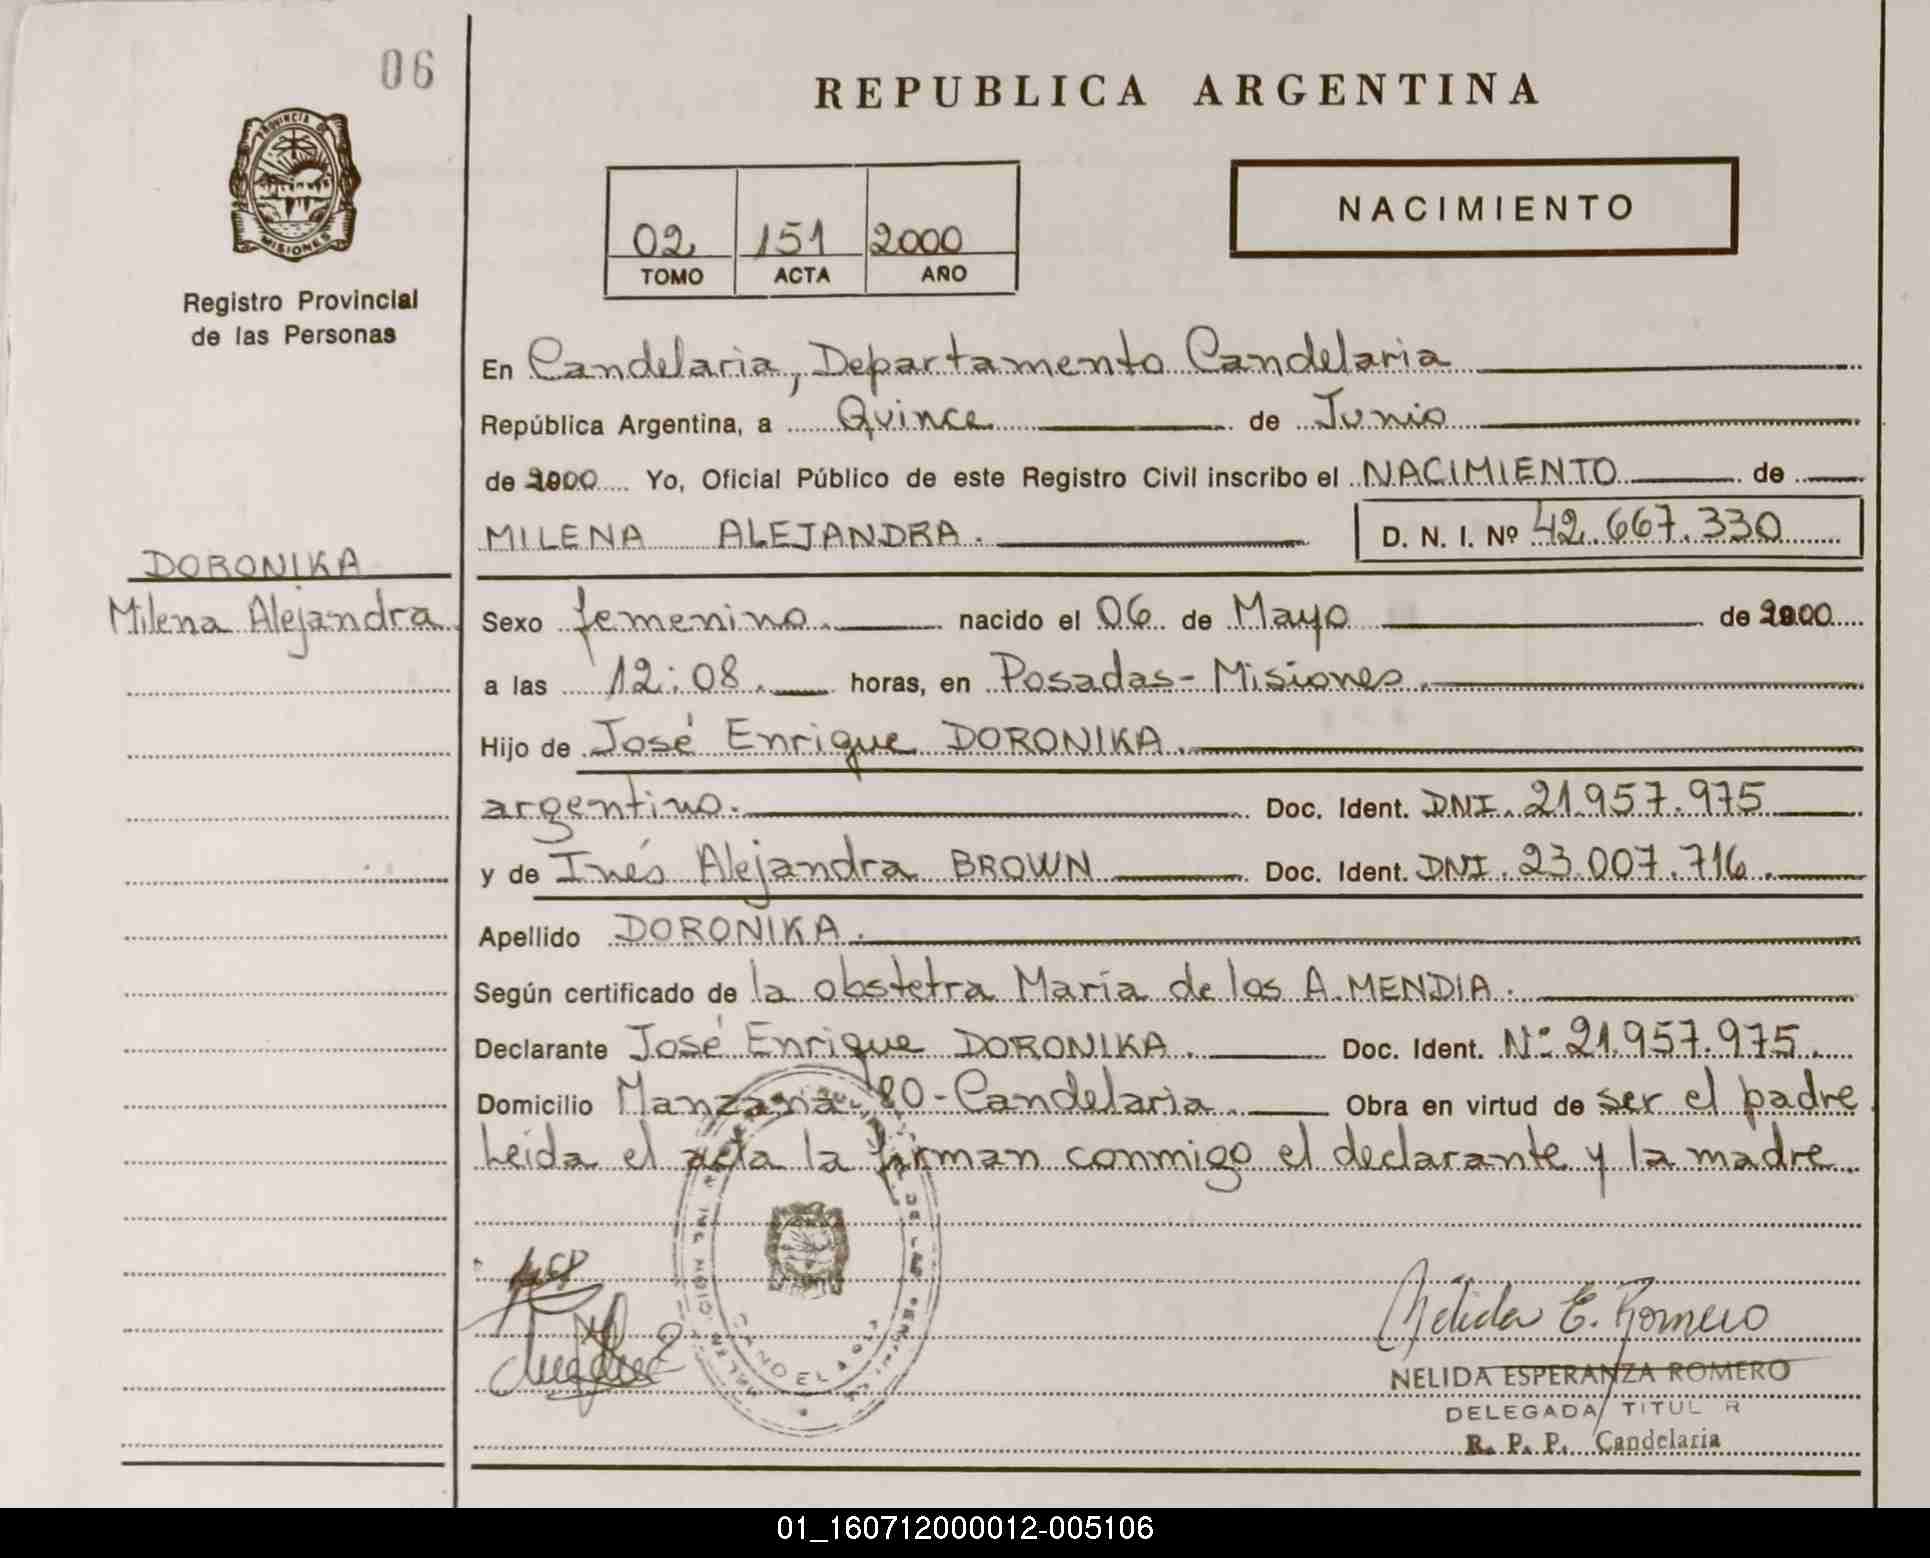 06
REPUBLICA ARGENTINA
PROVINCIA DE
MISIONES
Registro Provincial
de las Personas
NACIMIENTO
02 151 2000
TOMO ACTA AÑO
En Candelaria, Departamento Candelaria
República Argentina, a Quince de Junio
de 2000 Yo, Oficial Público de este Registro Civil inscribo el NACIMIENTO de
MILENA ALEJANDRA. D. N. I. Nº 42.667.330
DORONIKA
Milena Alejandra.
Sexo femenino. nacido el 06 de Mayo de 2000
a las 12:08. horas, en Posadas-Misiones.
Hijo de José Enrique DORONIKA.
argentino. Doc. Ident. DNI. 21.957.975
y de Inés Alejandra BROWN Doc. Ident. DNI. 23.007.716.
Apellido DORONIKA.
Según certificado de la obstetra María de los A. MENDIA.
Declarante José Enrique DORONIKA. Doc. Ident. Nº 21.957.975.
Domicilio Manzana 80-Candelaria. Obra en virtud de ser el padre.
Leída el acta la firman conmigo el declarante y la madre.
CANDELARIA
Nélida E. Romero
NELIDA ESPERANZA ROMERO
DELEGADA TITUL R
R. P. P. Candelaria
01_160712000012-005106